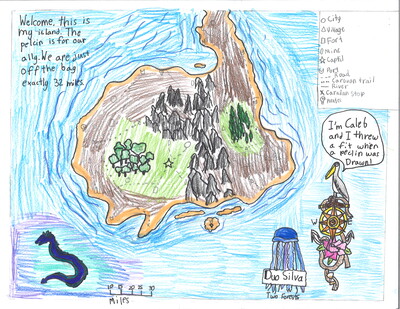 Welcome, this is
my island. The
pelcin is for our
ally. We are just
off the bag
exactly 32 miles.
City
Village
Fort
mine
Capitl
Port
Road
Caravan trail
River
Caravan stop
Ruin
I'm Caleb
and I threw
a fit when
a peclin was
Drawn!
W
Duo Silva
Two Forests
10 15 20 25 30
Miles